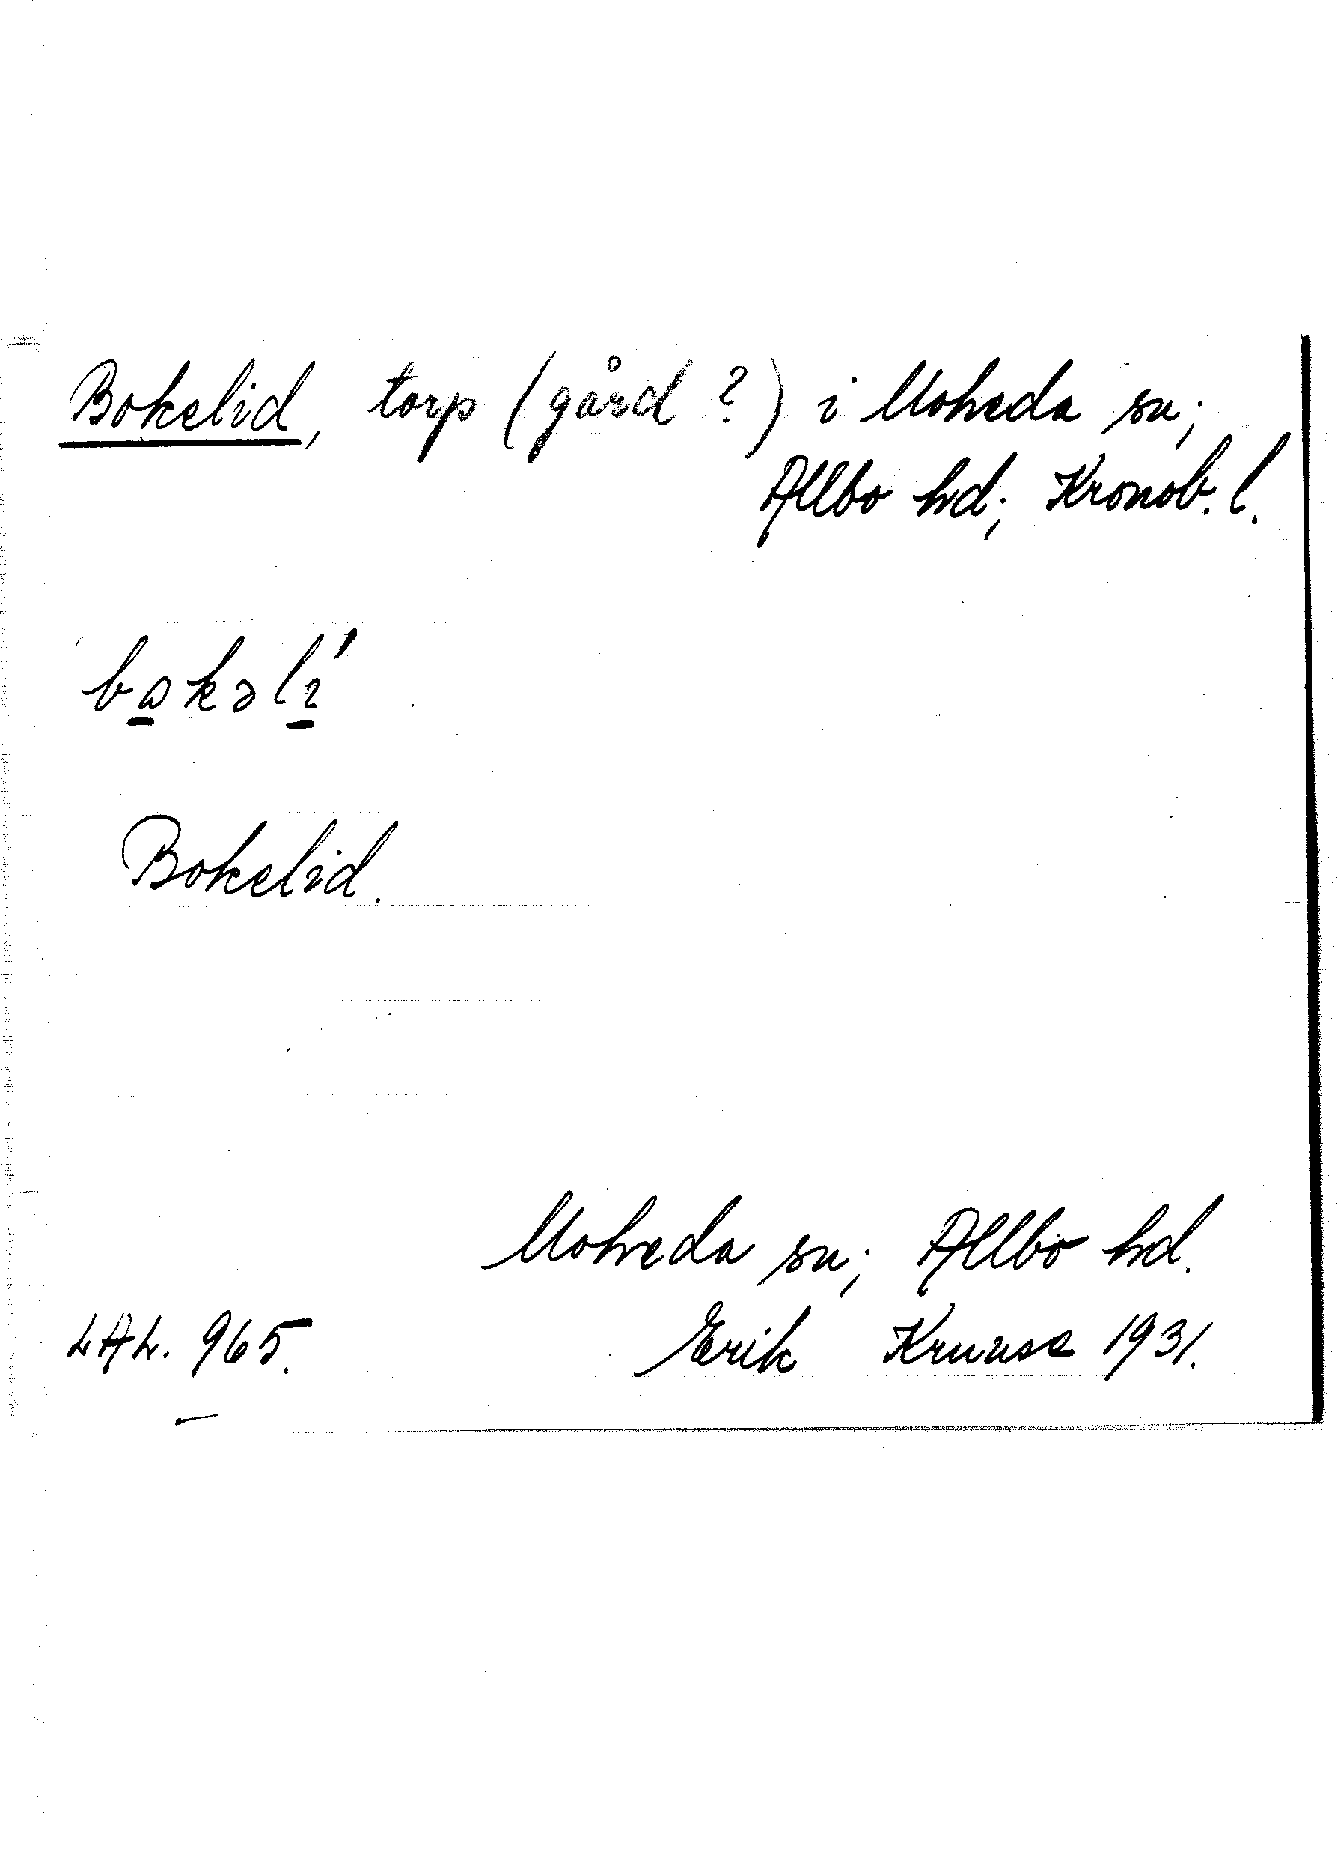 Bokelid, torp (gård ?) i Moheda sn;
Allbo hd; Kronob. l.
Bokelid.
Moheda sn; Allbo hd.
LAL. 965.
Erik Kruuse 1931.